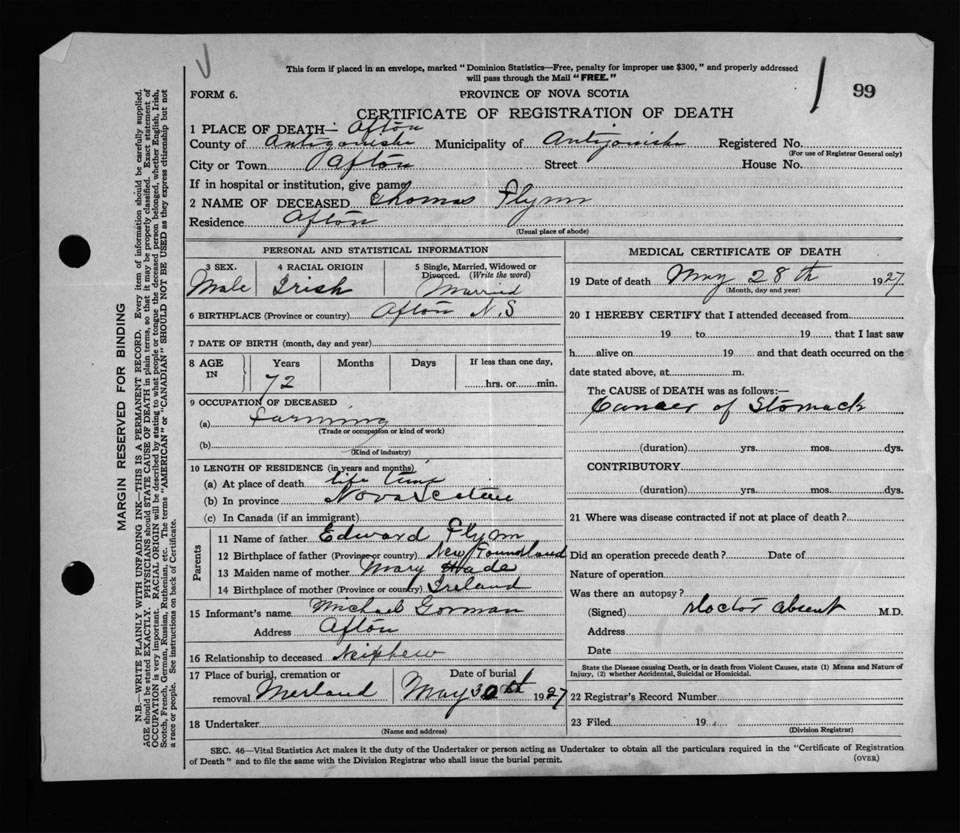 This form if placed in an envelope, marked "Dominion Statistics—Free, penalty for improper use $300," and properly addressed
will pass through the Mail "FREE."
FORM 6.
PROVINCE OF NOVA SCOTIA
99
CERTIFICATE OF REGISTRATION OF DEATH
1 PLACE OF DEATH— Afton
County of Antigonishe Municipality of Antigonishe Registered No.
(For use of Registrar General only)
City or Town Afton Street House No.
If in hospital or institution, give name
2 NAME OF DECEASED Thomas Flynn
Residence Afton
(Usual place of abode)
PERSONAL AND STATISTICAL INFORMATION
3 SEX. 4 RACIAL ORIGIN 5 Single, Married, Widowed or
Divorced. (Write the word)
Male Irish Married
6 BIRTHPLACE (Province or country) Afton N.S
7 DATE OF BIRTH (month, day and year)
8 AGE IN Years Months Days If less than one day,
72 hrs. or min.
9 OCCUPATION OF DECEASED
(a) farming
(Trade or occupation or kind of work)
(b)
(Kind of industry)
10 LENGTH OF RESIDENCE (in years and months)
(a) At place of death life time
(b) In province Nova Scotia
(c) In Canada (if an immigrant)
Parents
11 Name of father Edward Flynn
12 Birthplace of father (Province or country) New Foundland
13 Maiden name of mother Mary
14 Birthplace of mother (Province or country) Ireland
15 Informant's name Michael Gorman
Address Afton
16 Relationship to deceased Neixhew
17 Place of burial, cremation or
removal Merland May 30th 1927
18 Undertaker
(Name and address)
MEDICAL CERTIFICATE OF DEATH
19 Date of death May 28th 1927
(Month, day and year)
20 I HEREBY CERTIFY that I attended deceased from
19 to 19 that I last saw
h alive on 19 and that death occurred on the
date stated above, at m.
The CAUSE of DEATH was as follows:—
Cancer of Stomach
(duration) yrs. mos. dys.
CONTRIBUTORY
(duration) yrs. mos. dys.
21 Where was disease contracted if not at place of death?
Did an operation precede death? Date of
Nature of operation
Was there an autopsy?
(Signed) Doctor absent M.D.
Address
Date
State the Disease causing Death, or in death from Violent Causes, state (1) Means and Nature of
Injury, (2) whether Accidental, Suicidal or Homicidal.
22 Registrar's Record Number
23 Filed 19
(Division Registrar)
SEC. 46—Vital Statistics Act makes it the duty of the Undertaker or person acting as Undertaker to obtain all the particulars required in the "Certificate of Registration
of Death" and to file the same with the Division Registrar who shall issue the burial permit.
(OVER)
MARGIN RESERVED FOR BINDING
N.B.—WRITE PLAINLY WITH UNFADING INK—THIS IS A PERMANENT RECORD. Every item of information should be carefully supplied.
AGE should be stated EXACTLY. PHYSICIANS should STATE CAUSE OF DEATH in plain terms, so that it may be properly classified. Exact statement of
OCCUPATION is very important. RACIAL ORIGIN will be described by stating to what people or tongue the deceased person belonged, whether English, Irish,
Scotch, French, German, Russian, Ruthenian, etc. The terms "AMERICAN" or "CANADIAN" SHOULD NOT BE USED as they express citizenship but not
a race or people. See instructions on back of Certificate.